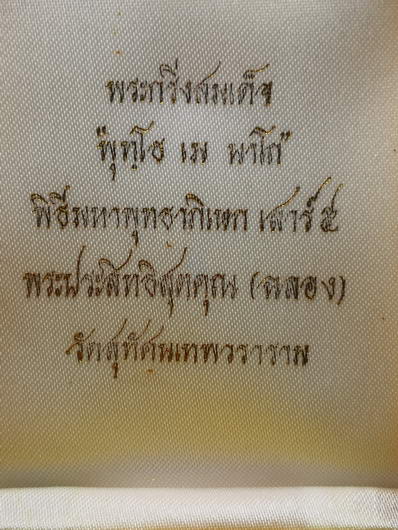 พระกริ่งสมเด็จ
"พุทฺโธ เม นาโถ"
พิธีมหาพุทธาภิเษก เสาร์ ๕
พระประสิทธิสุตคุณ (ฉลอง)
วัดสุทัศนเทพวราราม